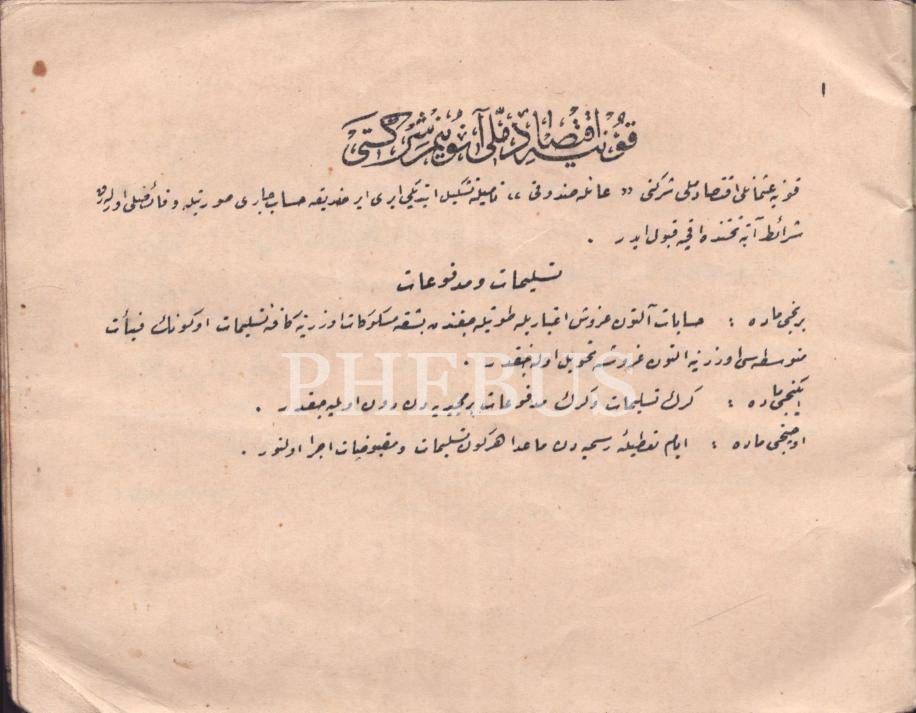 ١
قونیه اقتصاد ملی آنونیم شرکتی
قونیه عثمانلی اقتصاد ملی شرکتی « عائله صندوقی » نامیله تشکیل ایتدیکی حساب جاری صورتیله و فائضلی اوله‌رق
شرائط آتیه تحتنده اقچه قبول ایدر .
تسلیمات و مدفوعات
برنجی ماده : حسابات آلتون غروش اعتباریله طوتیله‌جغندن بشقه مسکوکات اوزرینه کافه تسلیمات او کونك فیئات
متوسطه‌سی اوزرینه التون غروشه تحویل اولنه‌جقدر .
ایکنجی ماده : کرك تسلیمات و کرك مدفوعات بر مجیدیه‌دن دون اولمیه‌جقدر .
اوچنجی ماده : ایام تعطیلهٔ رسمیه‌دن ماعدا هرکون تسلیمات و مقبوضات اجرا اولنور .
PHEBUS